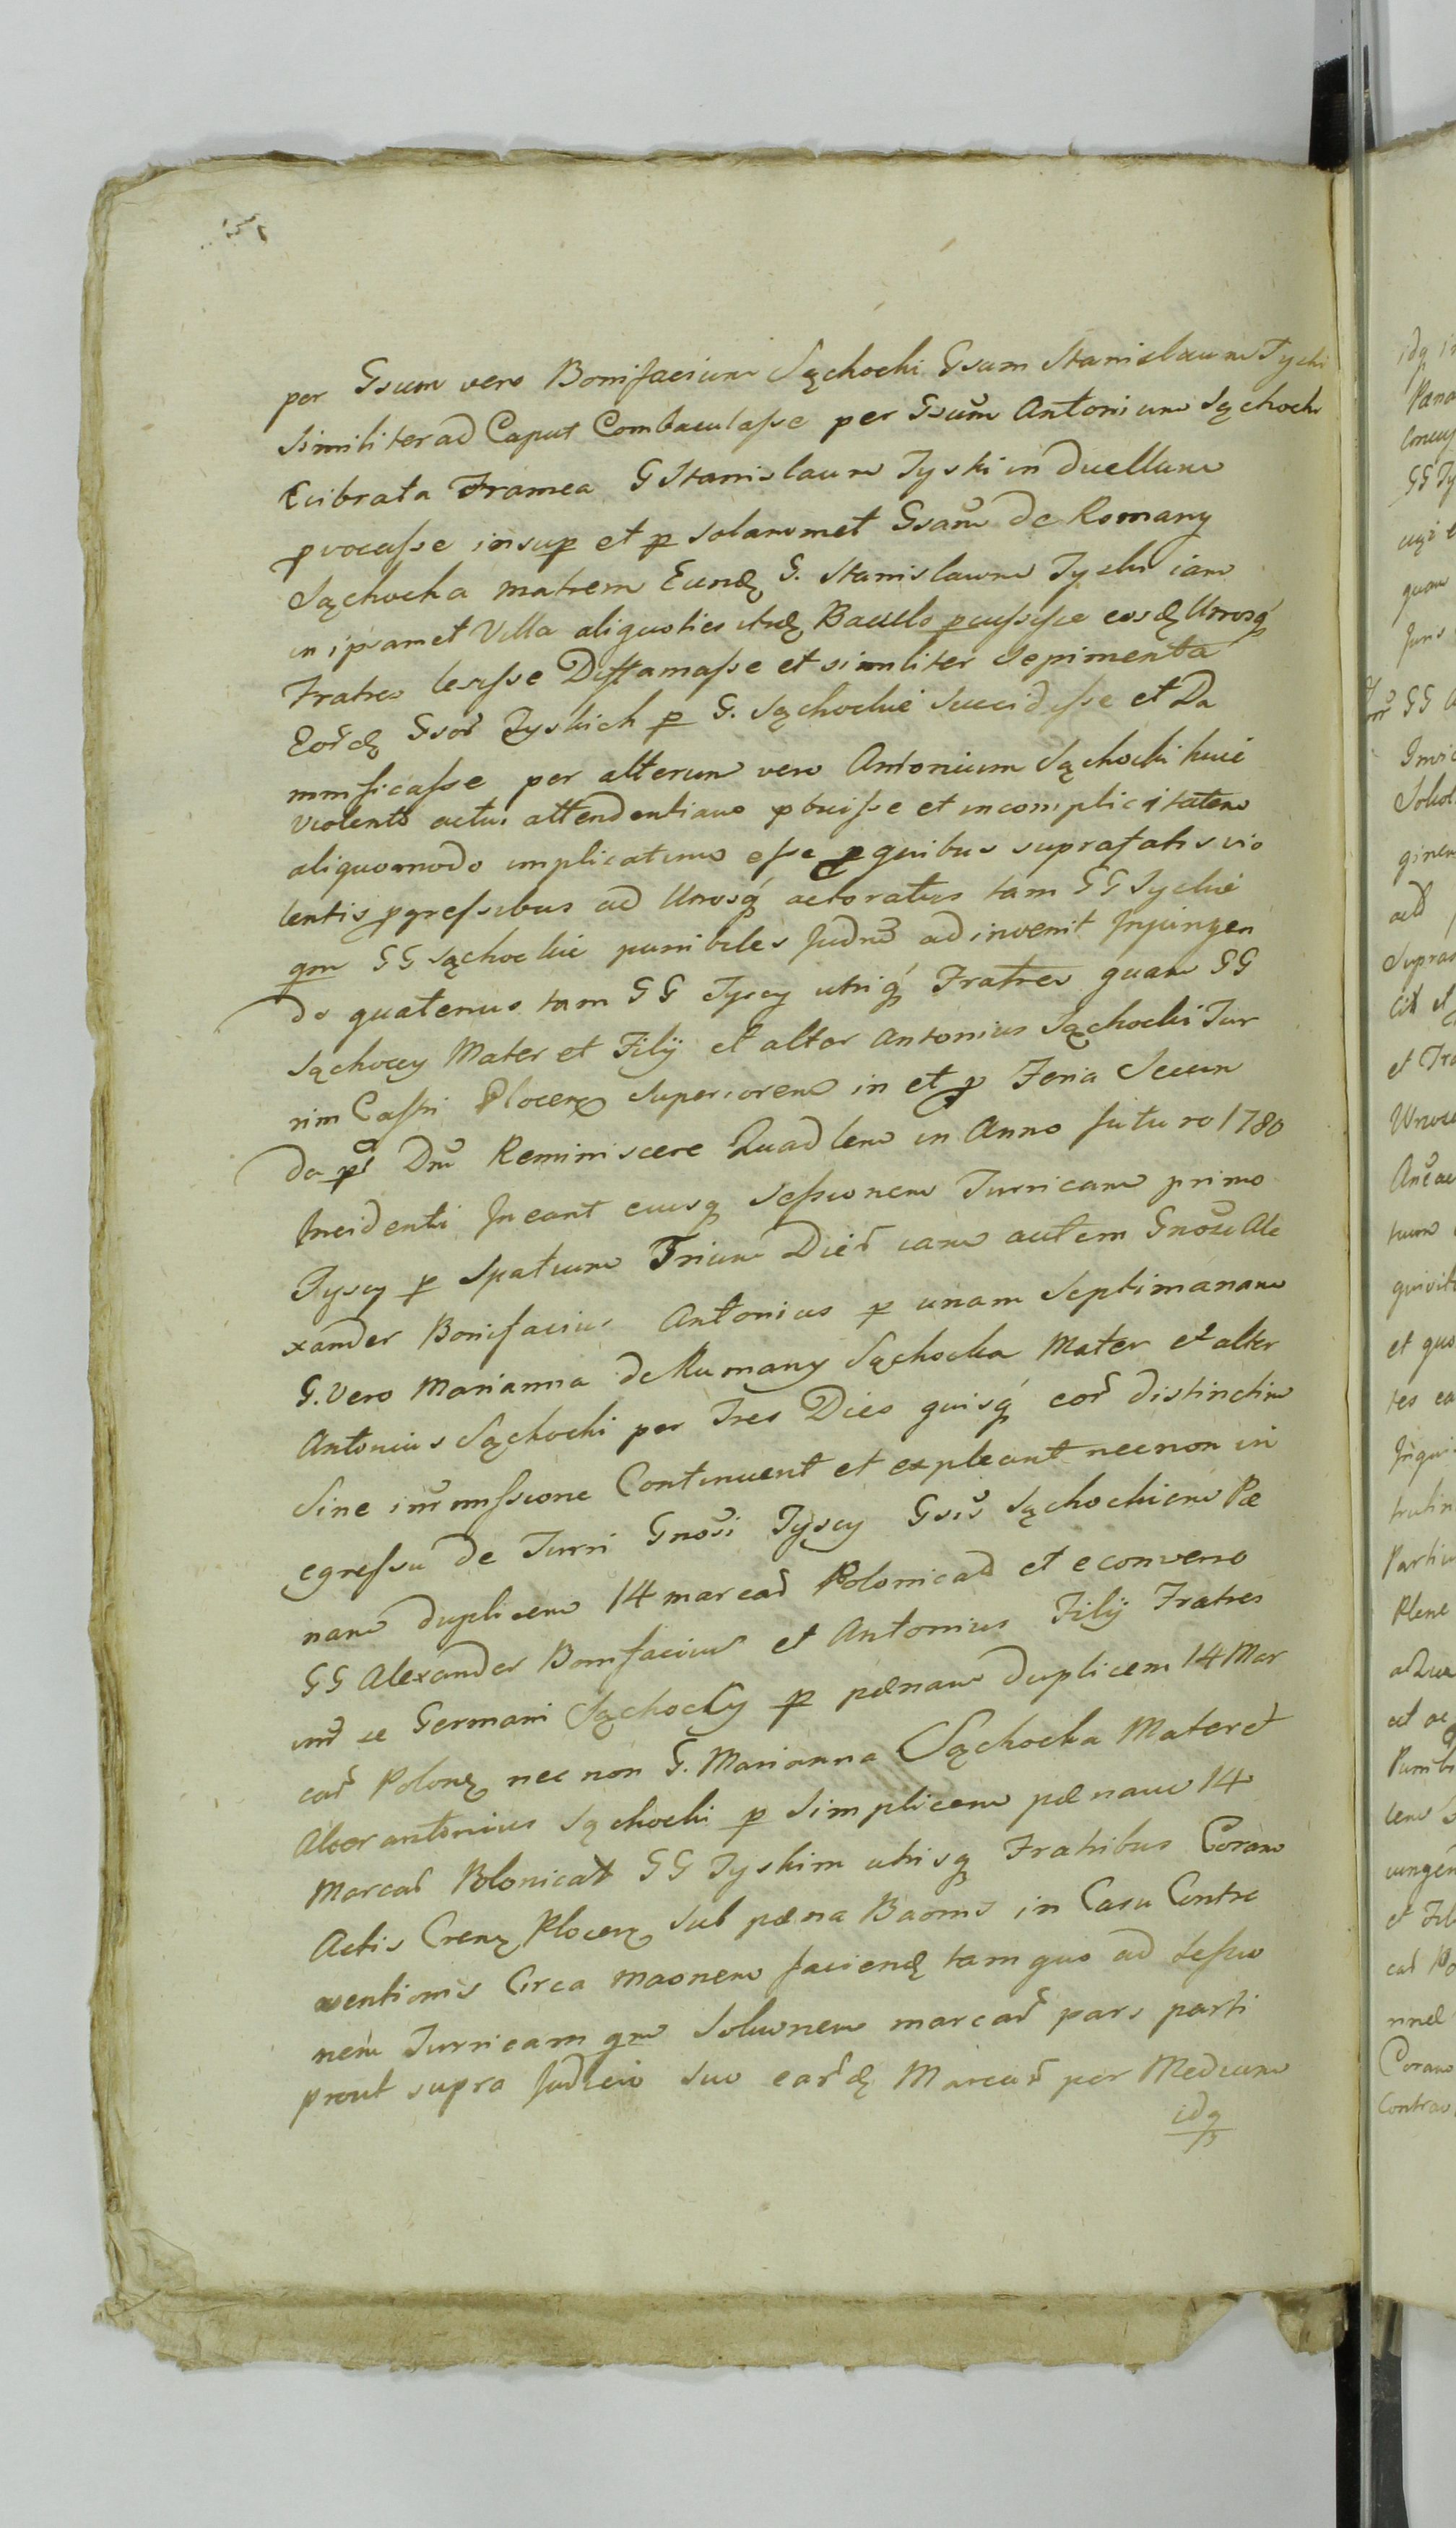 per Gsum vero Bonifacium Sąchocki Gsum Stanislaum Tyski
similiter ad Caput Combaculasse per Gsum Antonium Sąchocki
Evibrata Framea G Stanislaum Tyski in duellum
pvocasse insup et p solammet Gsam de Romany
Sąchocka matrem Eund G. Stanislaum Tyski iam
in ipsamet Villa aliquoties itid Baculo pcussisse eosd Utrosq
Fratres lesisse Diffamasse et similiter Sepimenta
Eord Gsor Tyskich p G. Sąchockie Succidisse et Da
mnificasse per alterum vero Antonium Sąchocki huic
violento actui attendentiam pbuisse et in complicitatem
aliquomodo implicatum esse p quibus suprafatis vio
lentis pgressibus ad Utrosq actoratus tam GG Tyskie
qm GG Sąchockie punibiles Judm adinvenit Injungen
do quatenus tam GG Tyscy utriq Fratres quam GG
Sąchoccy Mater et Filij et alter Antonius Sąchocki Tur
rim Castri Plocen Superiorem in et p Feria Secun
da pt Dnu Reminiscere Quadlem in Anno futuro 1780
Incidenti Ineant eiusq Sessionem Turricam primo
Tyscy p Spatium Trium Dier iam autem Gnosi Ale
xander Bonifacius Antonius p unam Septimanam
G. Vero Marianna de Rumany Sąchocka Mater et alter
Antonius Sąchocki per Tres Dies quisq eor distinctim
Sine inrmissione Continuent et expleant necnon in
egressu de Turri Gnosi Tyscy Gsis Sąchockiem Pæ
nam duplicem 14 marcar Polonicar et econverso
GG Alexander Bonifacius et Antonius Filij Fratres
inr se Germani Sąchockÿ p pænam duplicem 14 Mar
car Polon nec non G. Marianna Sąchocka Mater et
Alter antonius Sąchocki p Simplicem pænam 14
Marcar Polonicar GG Tyskim utrisq Fratribus Coram
Actis Cren Plocen Sub pæna Baonis in Casu Contra
ventionis Circa maonem faciend tam quo ad Sessio
nem Turricam qm Soluonem marcar pars parti
prout supra Judicio Suo eard Marcar per Medium
idq